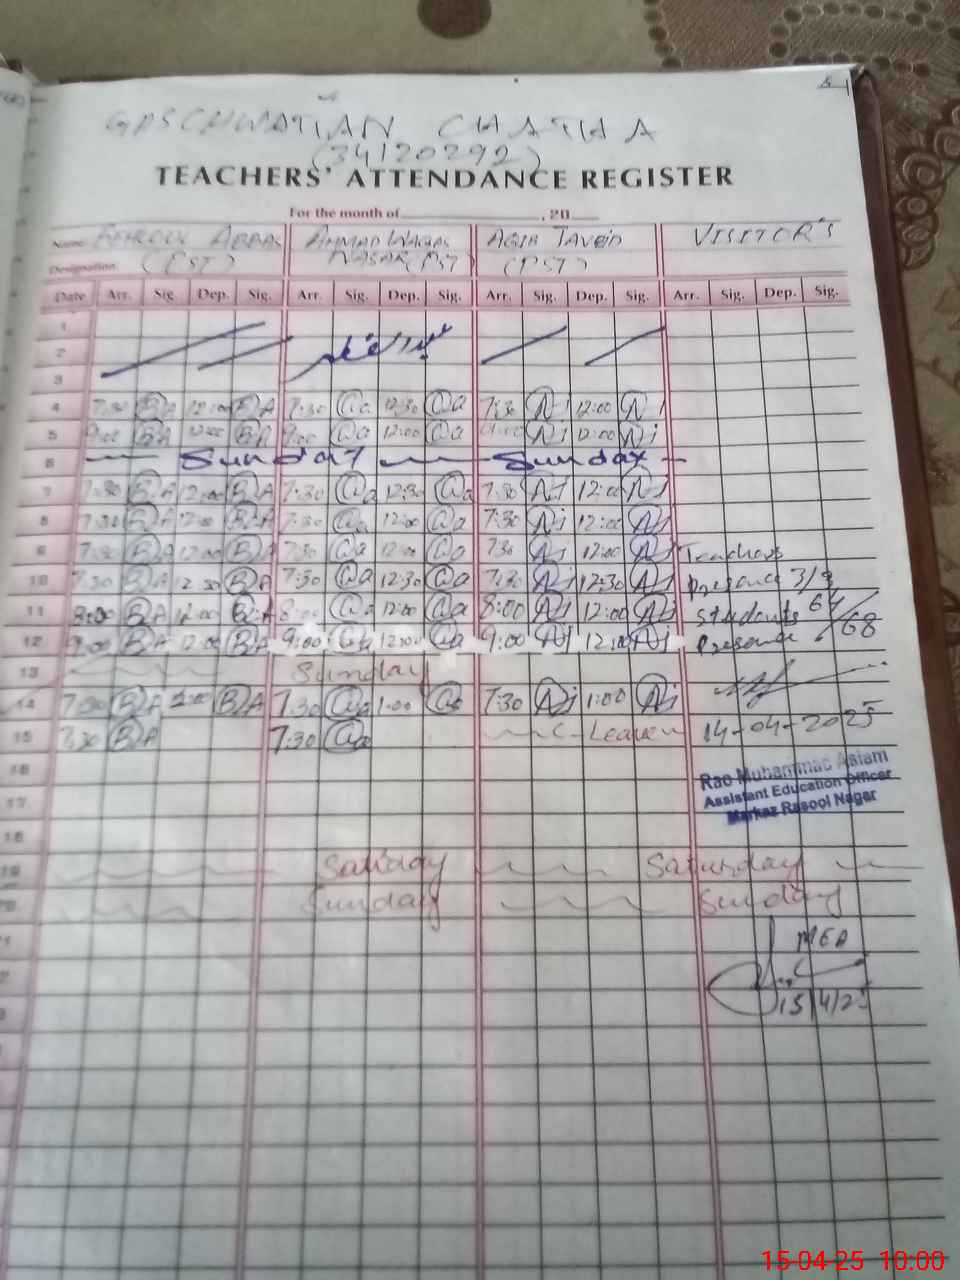 CHATHA
(34120292)
TEACHERS' ATTENDANCE REGISTER
For the month of , 20
Name ABBAS AHMAD WAQAS AQIB JAVED VISITOR'S
Designation. (PST) NASAR (PST) (PST)
Date Arr. Sig. Dep. Sig. Arr. Sig. Dep. Sig. Arr. Sig. Dep. Sig. Arr. Sig. Dep. Sig.
1
2
3
4 7:30 BA 12:00 BA 7:30 @a 12:30 @a 7:30 AJ 12:00 AJ
5 9:00 BA 12:00 BA 9:00 @a 12:00 @a 9:00 AJ 12:00 AJ
6 Sunday Sunday
7 7:30 BA 12:00 BA 7:30 @a 12:30 @a 7:30 AJ 12:00 AJ
8 7:30 BA 12:00 BA 7:30 @a 12:00 @a 7:30 AJ 12:00 AJ
9 7:30 BA 12:00 BA 7:30 @a 12:00 @a 7:30 AJ 12:00 AJ Teachers
10 7:30 BA 12:30 BA 7:30 @a 12:30 @a 7:30 AJ 12:30 AJ Presence 3/3
11 8:00 BA 12:00 BA 8:00 @a 12:00 @a 8:00 AJ 12:00 AJ Students 64/68
12 9:00 BA 12:00 BA 9:00 @a 12:00 @a 9:00 AJ 12:00 AJ Presence
13 Sunday
14 7:30 BA BA 7:30 @a 1:00 @a 7:30 AJ 1:00 AJ
15 7:30 BA 7:30 @a C-Leave 14-04-2025
16
Rao Muhammad Aslam
Assistant Education Officer
Markaz Rasool Nagar
17
18
19 Saturday Saturday
20 Sunday Sunday
MEA
15/4/25
15-04-25 10:00